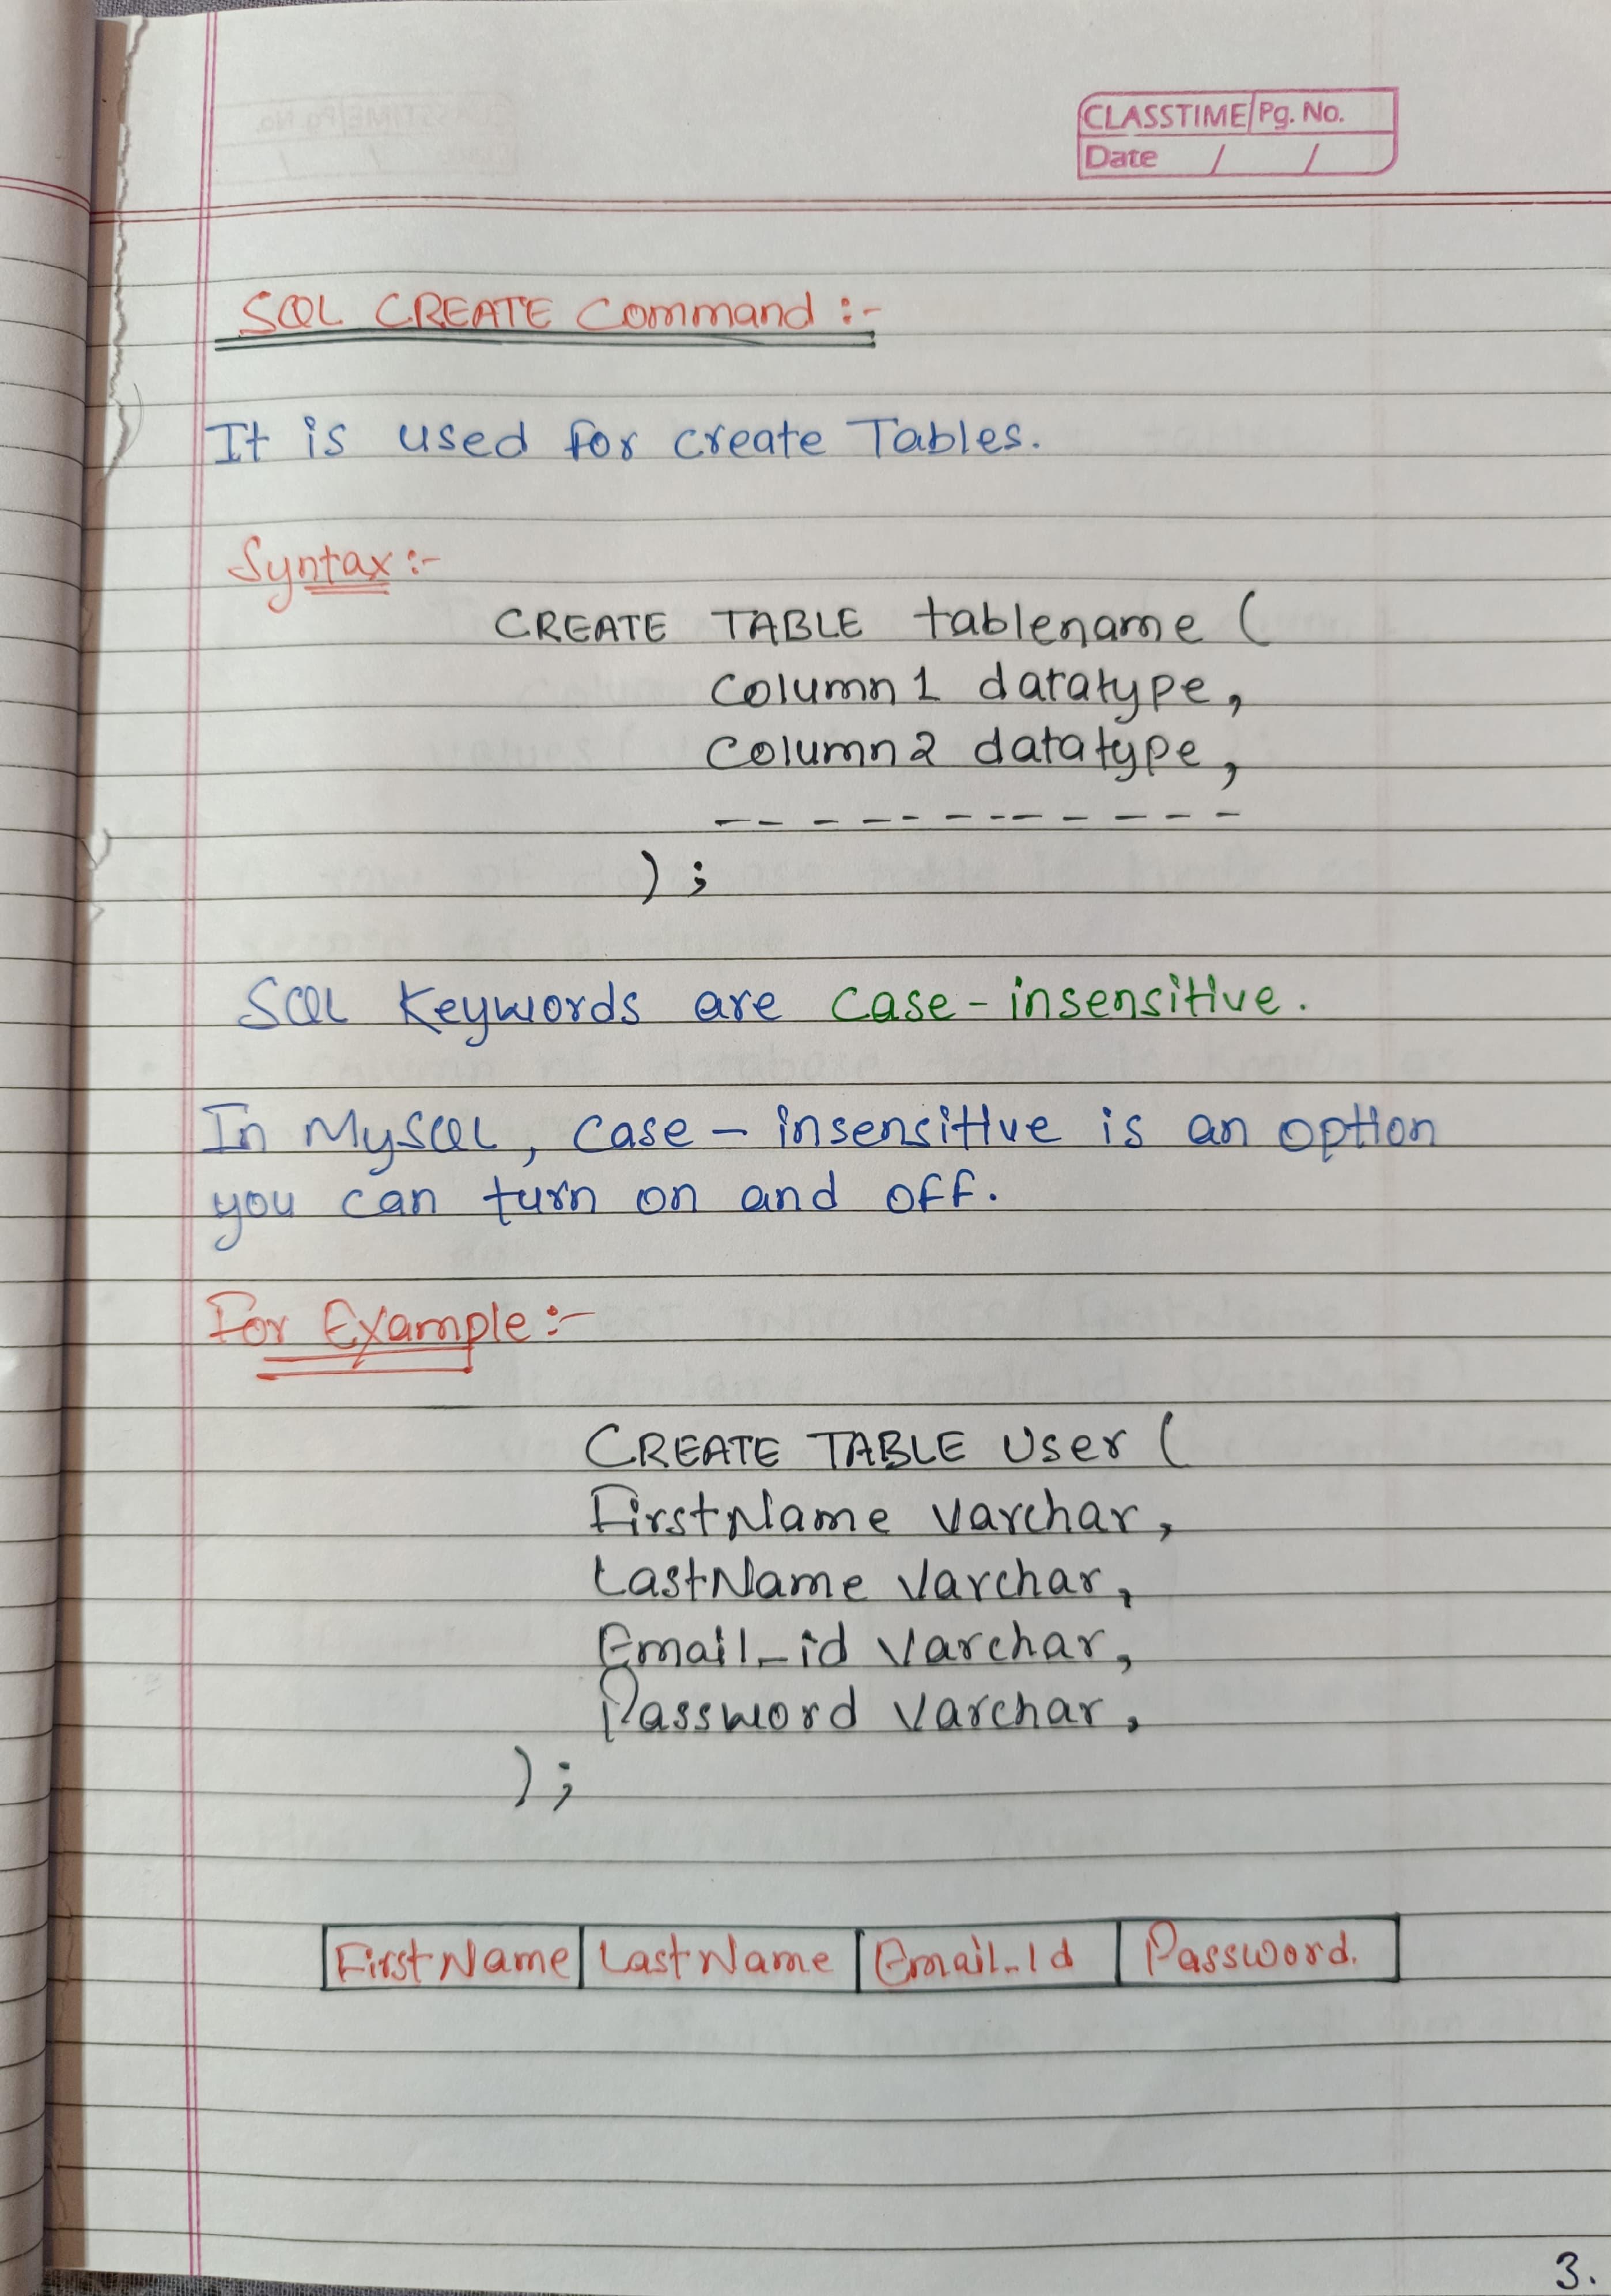 CLASSTIME Pg. No.
Date / /
SQL CREATE Command :-
It is used for create Tables.
Syntax :-
CREATE TABLE tablename (
Column 1 datatype,
Column 2 datatype,
------------
) ;
SQL Keywords are case-insensitive.
In MySQL, case-insensitive is an option
you can turn on and off.
For Example :-
CREATE TABLE User (
FirstName Varchar,
LastName Varchar,
Email_id Varchar,
Password Varchar,
);
FirstName LastName Email_Id Password.
3.